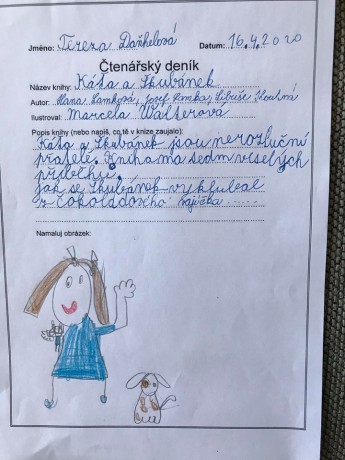 Jméno: Tereza Daňhelová Datum: 16.4.2020
Čtenářský deník
Název knihy: Káťa a Škubánek
Autor: Hana Lamková, Josef Lamka, Libuše Koutná
Ilustroval: Marcela Walterová
Popis knihy (nebo napiš, co tě v knize zaujalo):
Káťa a Škubánek jsou nerozluční
přatelé. Kniha má sedm veselých
příběhů.
Jak se Škubánek vyklubal
z čokoládového vajíčka .....
Namaluj obrázek: